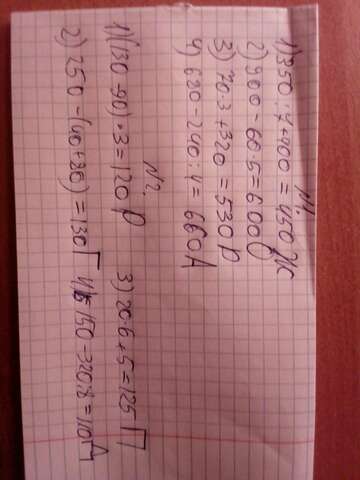 N1.
1) 350:7+400=450 Ж
2) 900-60·5=600 О
3) 70·3+320=530 Р
4) 680-240:4=660 Д
N2.
1) (130-90)·3=120 Р
2) 250-(40+80)=130 Г
3) 20·6+5=125 П
4) 150-320:8=110 Д